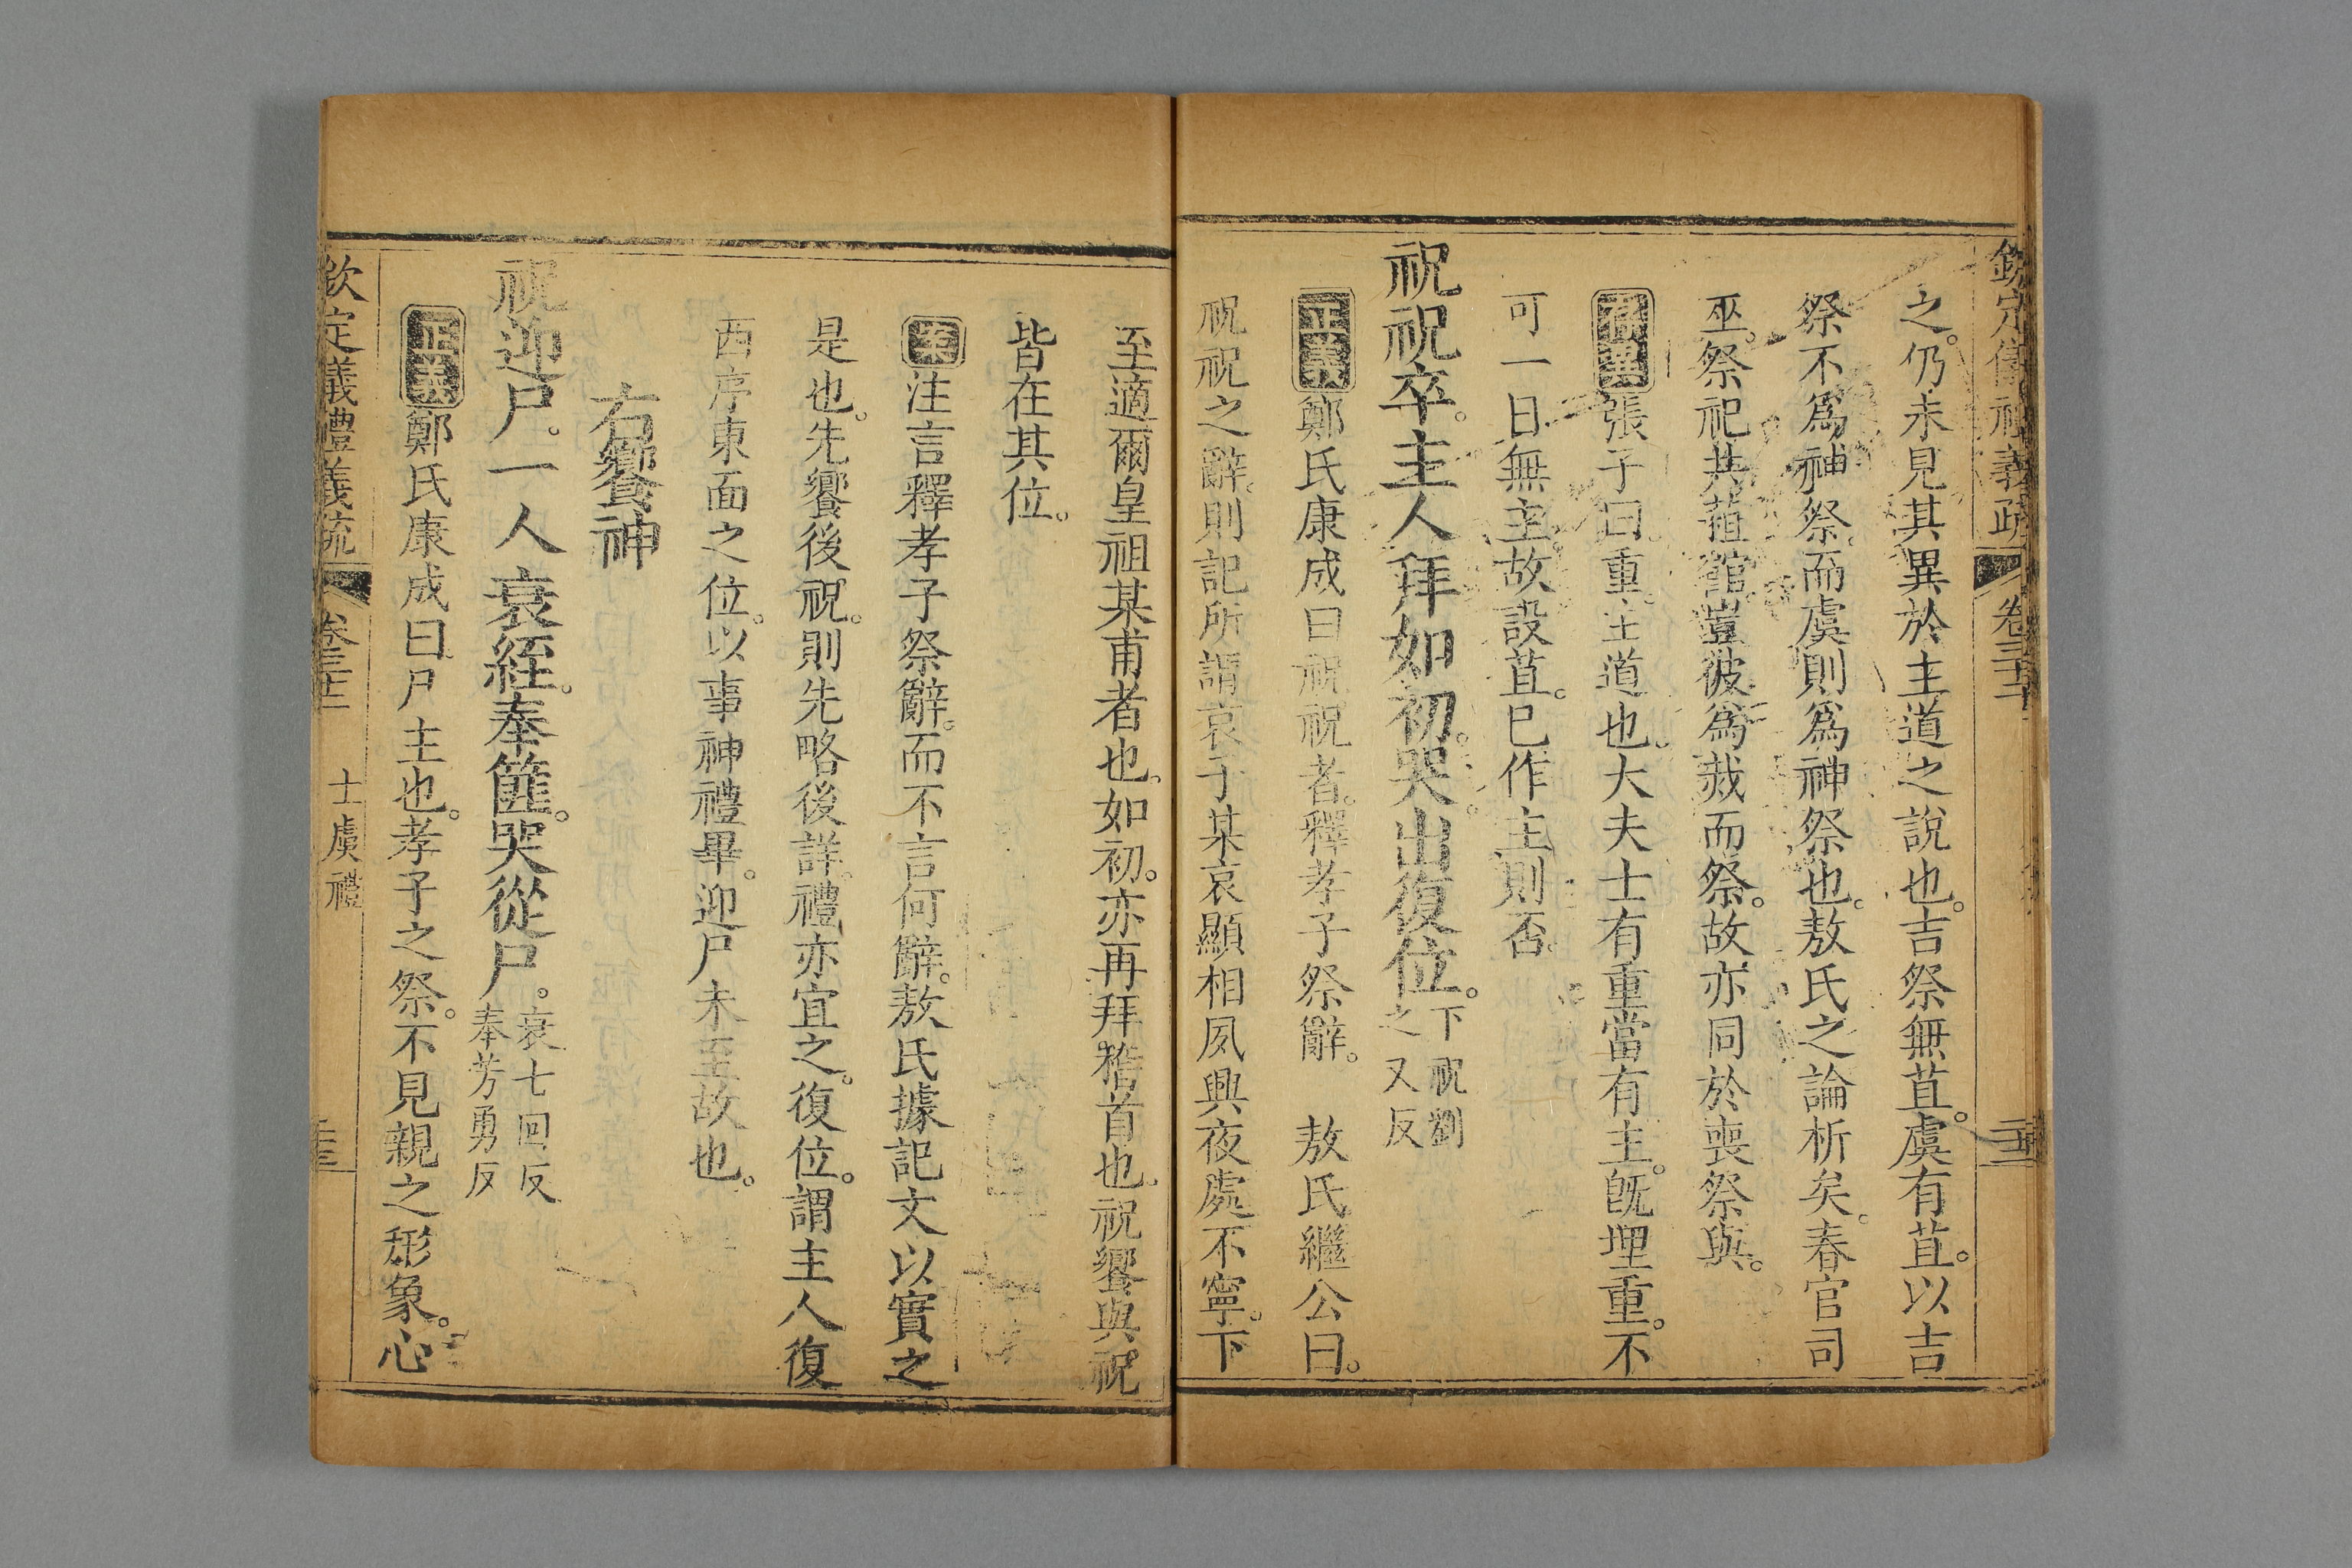 欽定儀禮義疏 卷三十三
之。仍未見其異於主道之說也。吉祭無苴。虞有苴。以吉
祭不爲神祭。而虞則爲神祭也。敖氏之論析矣。春官司
巫。祭祀共蒩館。豈彼爲烖而祭。故亦同於喪祭與。
存異張子曰。重主道也。大夫士有重當有主。旣埋重。不
可一日無主。故設苴。已作主則否。
祝祝卒。主人拜如初。哭。出復位。下祝劉之又反
正義鄭氏康成曰。祝祝者。釋孝子祭辭。 敖氏繼公曰。
祝祝之辭。則記所謂哀子某哀顯相夙興夜處不寧。下
至適爾皇祖某甫者也。如初。亦再拜稽首也。祝饗與祝
皆在其位。
案注言釋孝子祭辭。而不言何辭。敖氏據記文以實之
是也。先饗後祝。則先略後詳。禮亦宜之。復位。謂主人復
西序東面之位。以事神禮畢。迎尸未至故也。
右饗神
祝迎尸。一人衰絰。奉篚。哭從尸。衰七回反奉芳勇反
正義鄭氏康成曰。尸主也。孝子之祭。不見親之形象。心
欽定儀禮義疏 卷三十三 士虞禮